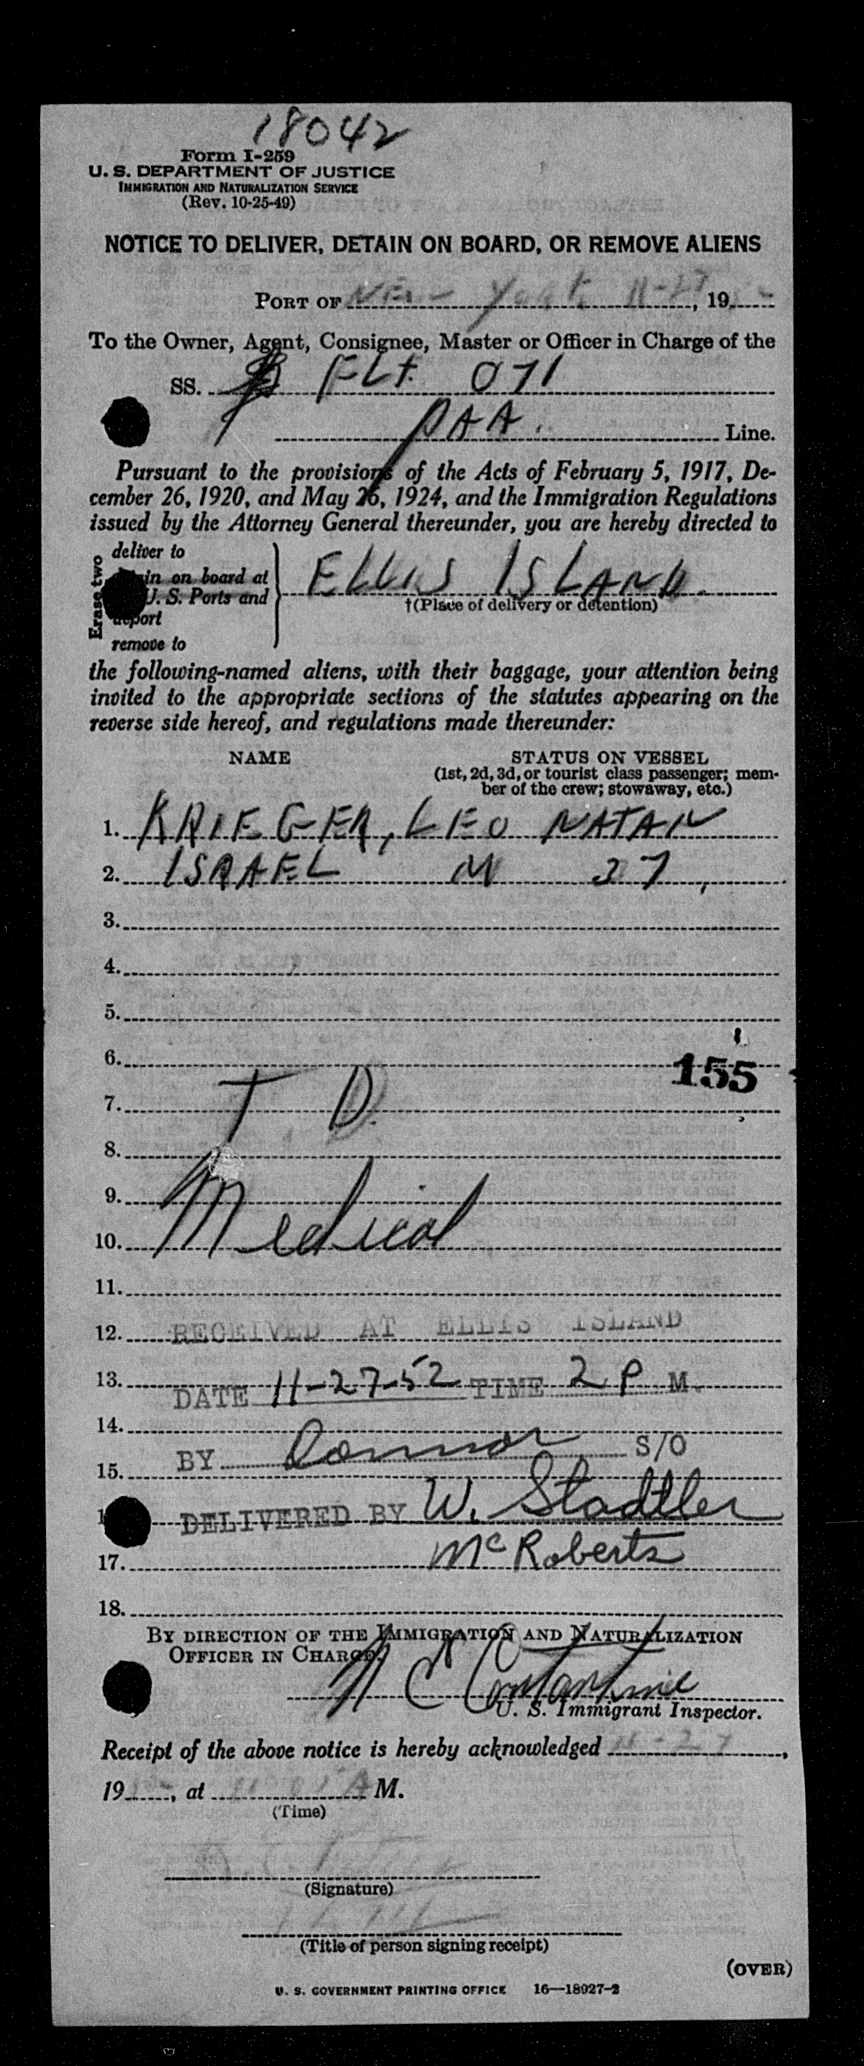 18042
Form I-259
U. S. DEPARTMENT OF JUSTICE
IMMIGRATION AND NATURALIZATION SERVICE
(Rev. 10-25-49)
NOTICE TO DELIVER, DETAIN ON BOARD, OR REMOVE ALIENS
PORT OF New York, 11-27, 19
To the Owner, Agent, Consignee, Master or Officer in Charge of the
SS. FLT. 071
PAA. Line.
Pursuant to the provisions of the Acts of February 5, 1917, De-
cember 26, 1920, and May 26, 1924, and the Immigration Regulations
issued by the Attorney General thereunder, you are hereby directed to
Erase two
deliver to
in on board at
U. S. Ports and
deport
remove to
ELLIS ISLAND.
†(Place of delivery or detention)
the following-named aliens, with their baggage, your attention being
invited to the appropriate sections of the statutes appearing on the
reverse side hereof, and regulations made thereunder:
NAME STATUS ON VESSEL
(1st, 2d, 3d, or tourist class passenger; mem-
ber of the crew; stowaway, etc.)
1. KRIEGER, LEO NATAN
2. ISRAEL M 27
3.
4.
5.
6. 155
7. T D.
8.
9.
10. Medical
11.
12. RECEIVED AT ELLIS ISLAND
13. DATE 11-27-52 TIME 2 P M.
14.
BY Connor S/O
15.
DELIVERED BY W. Stadtler
17. McRoberts
18.
BY DIRECTION OF THE IMMIGRATION AND NATURALIZATION
OFFICER IN CHARGE.
Constantine
U. S. Immigrant Inspector.
Receipt of the above notice is hereby acknowledged 11-27,
19, at A M.
(Time)
(Signature)
(Title of person signing receipt)
(OVER)
U. S. GOVERNMENT PRINTING OFFICE 16—18027-2